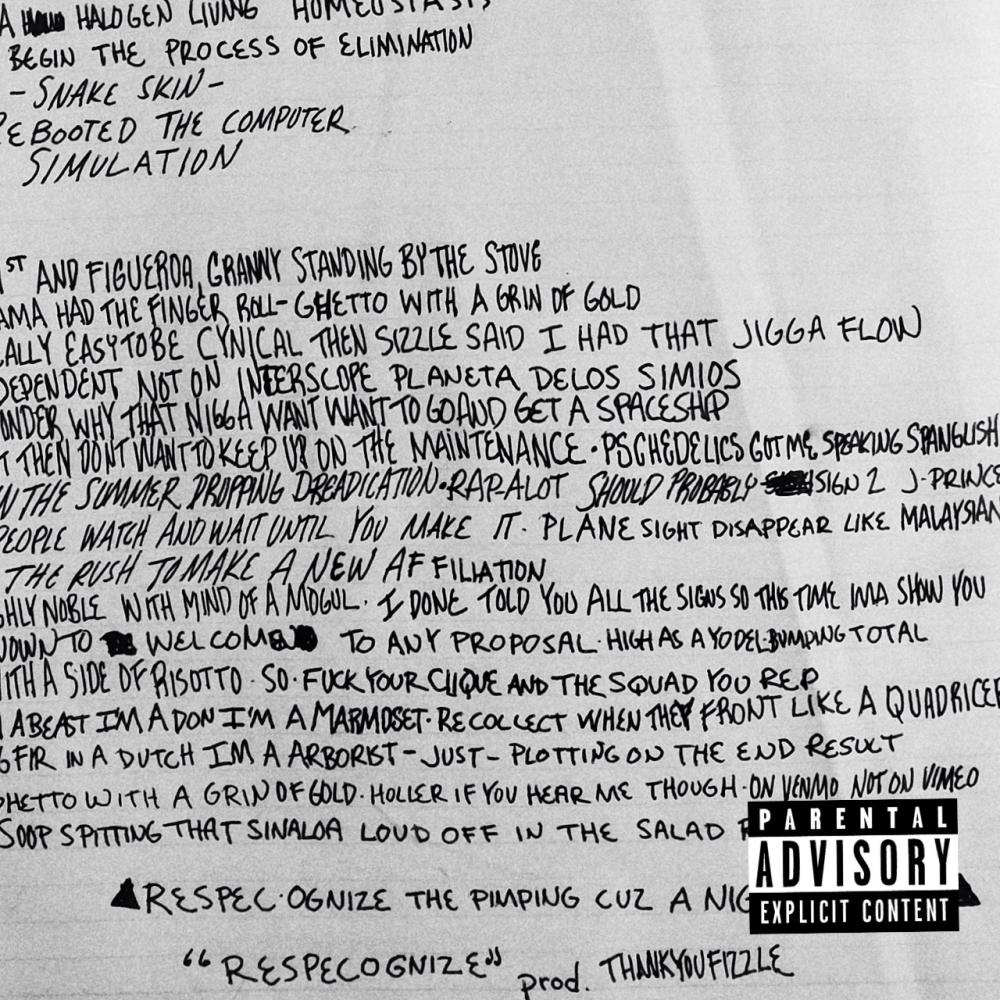 A HALOGEN LIVING HOMEOSTASIS
BEGIN THE PROCESS OF ELIMINATION
- SNAKE SKIN -
REBOOTED THE COMPUTER
SIMULATION
1ST AND FIGUEROA, GRANNY STANDING BY THE STOVE
AMA HAD THE FINGER ROLL- GHETTO WITH A GRIN OF GOLD
CALLY EASY TO BE CYNICAL THEN SIZZLE SAID I HAD THAT JIGGA FLOW
DEPENDENT NOT ON INTERSCOPE PLANETA DELOS SIMIOS
ONDER WHY THAT NIGGA WANT WANT TO GO AND GET A SPACESHIP
T THEN DONT WANT TO KEEP UP ON THE MAINTENANCE · PSCHEDELICS GOT ME SPEAKING SPANGLISH
IN THE SUMMER DROPPING DREADICATION · RAP-A-LOT SHOULD PROBABLY SIGN 2 J-PRINCE
PEOPLE WATCH AND WAIT UNTIL YOU MAKE IT · PLANE SIGHT DISAPPEAR LIKE MALAYSIAN
THE RUSH TO MAKE A NEW AFFILIATION
GHLY NOBLE WITH MIND OF A MOGUL · I DONE TOLD YOU ALL THE SIGNS SO THIS TIME IMA SHOW YOU
DOWN TO WELCOME TO ANY PROPOSAL · HIGH AS A YODEL · BUMPING TOTAL
WITH A SIDE OF RISOTTO · SO · FUCK YOUR CLIQUE AND THE SQUAD YOU REP
A BEAST I'M A DON I'M A MARMOSET · RECOLLECT WHEN THEY FRONT LIKE A QUADRICEP
G FIR IN A DUTCH IM A ARBORIST - JUST - PLOTTING ON THE END RESULT
GHETTO WITH A GRIN OF GOLD · HOLLER IF YOU HEAR ME THOUGH · ON VENMO NOT ON VIMEO
SOOP SPITTING THAT SINALOA LOUD OFF IN THE SALAD
RESPEC·OGNIZE THE PIMPING CUZ A NIG
"RESPECOGNIZE" prod. THANKYOUFIZZLE
PARENTAL
ADVISORY
EXPLICIT CONTENT